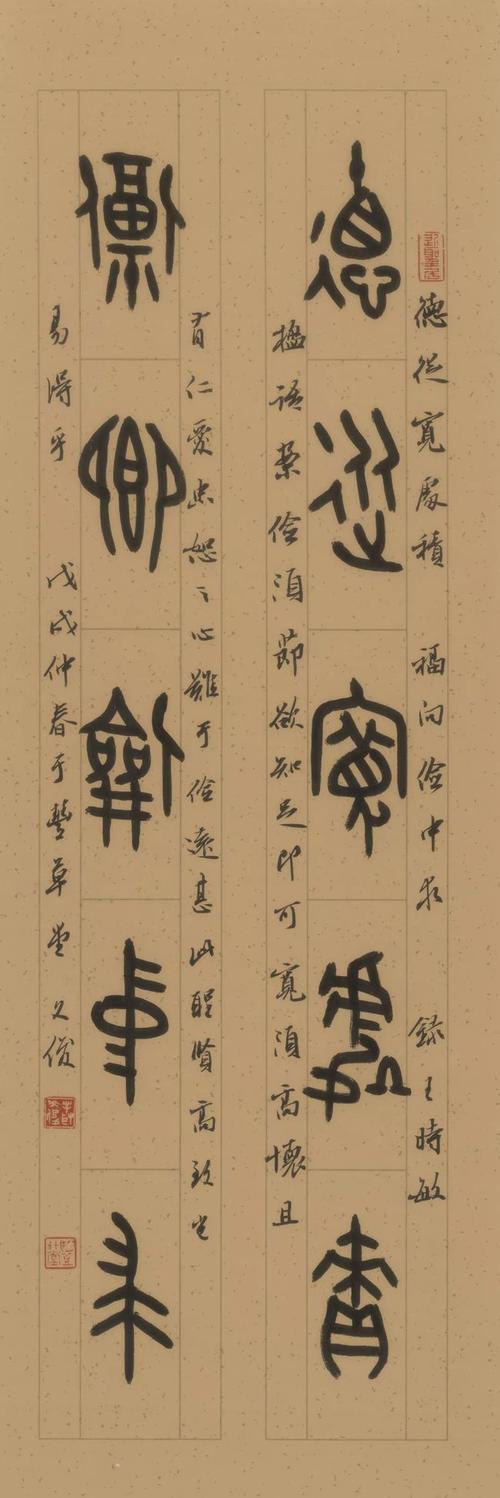 德從寬處積 福向儉中求 錄王時敏
德從寬處積
楹語 案儉須節欲知足即可 寬須高懷且
有仁愛忠恕之心難于儉遠甚 此聖賢高致豈
福向儉中求
易得乎 戊戌仲春于草堂